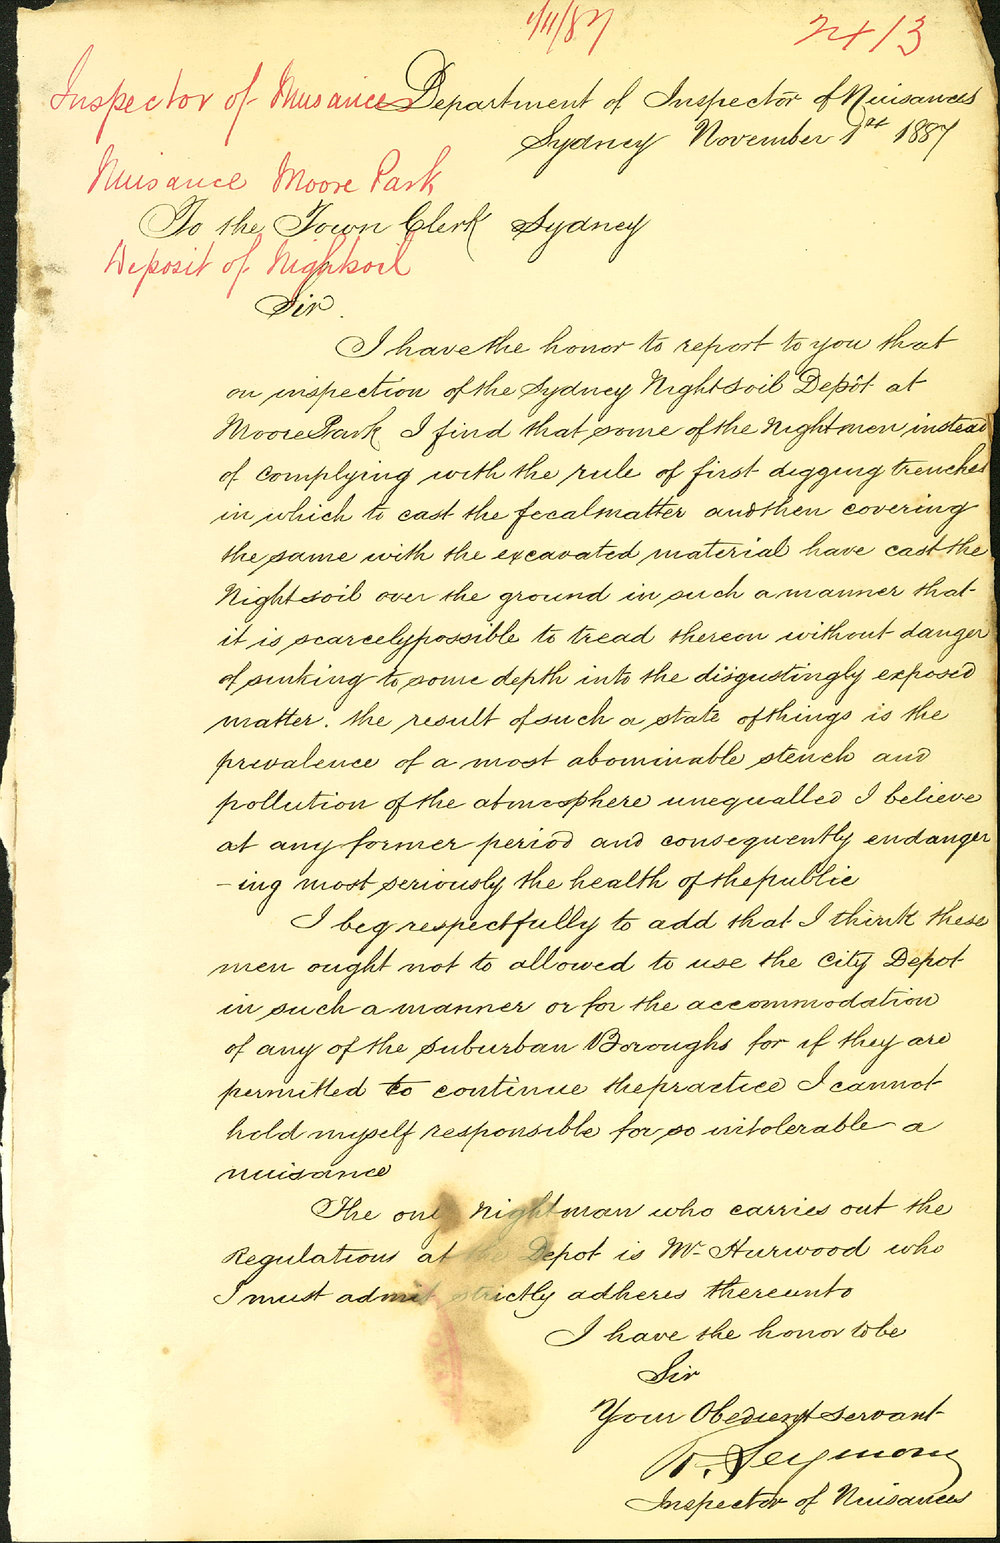 1/11/87
2413
Inspector of Nuisances
Department of Inspector of Nuisances
Sydney November 1st 1887
Nuisance Moore Park
To the Town Clerk Sydney
Deposit of Nightsoil
Sir.
I have the honor to report to you that
on inspection of the Sydney Nightsoil Depôt at
Moore Park I find that some of the Nightmen instead
of complying with the rule of first digging trenches
in which to cast the fecal matter and then covering
the same with the excavated material have cast the
Nightsoil over the ground in such a manner that
it is scarcely possible to tread thereon without danger
of sinking to some depth into the disgustingly exposed
matter. the result of such a state of things is the
prevalence of a most abominable stench and
pollution of the atmosphere unequalled I believe
at any former period and consequently endanger
-ing most seriously the health of the public
I beg respectfully to add that I think these
men ought not to allowed to use the City Depot
in such a manner or for the accommodation
of any of the suburban Boroughs for if they are
permitted to continue the practice I cannot
hold myself responsible for so intolerable a
nuisance
The only Nightman who carries out the
Regulations at the Depot is Mr Hurwood who
I must admit strictly adheres thereunto
I have the honor to be
Sir
Your Obedient servant
Seymour
Inspector of Nuisances